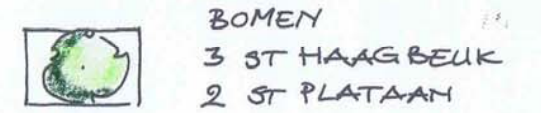 BOMEN
3 ST HAAGBEUK
2 ST PLATAAN